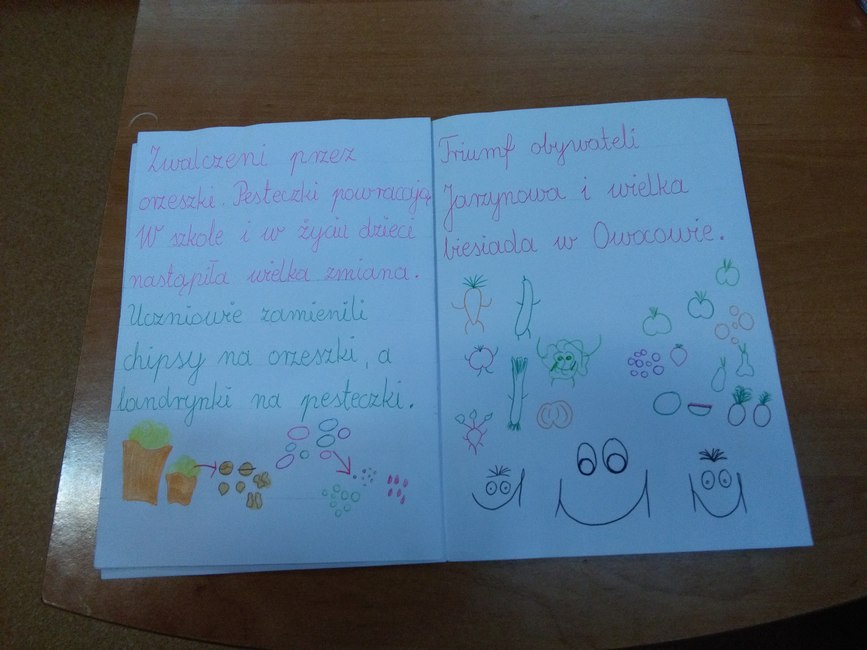 Zwalczeni przez
orzeszki. Pesteczki powracają.
W szkole i w życiu dzieci
nastąpiła wielka zmiana.
Uczniowie zamienili
chipsy na orzeszki, a
landrynki na pesteczki.
Triumf obywateli
Jarzynowa i wielka
biesiada w Owocowie.